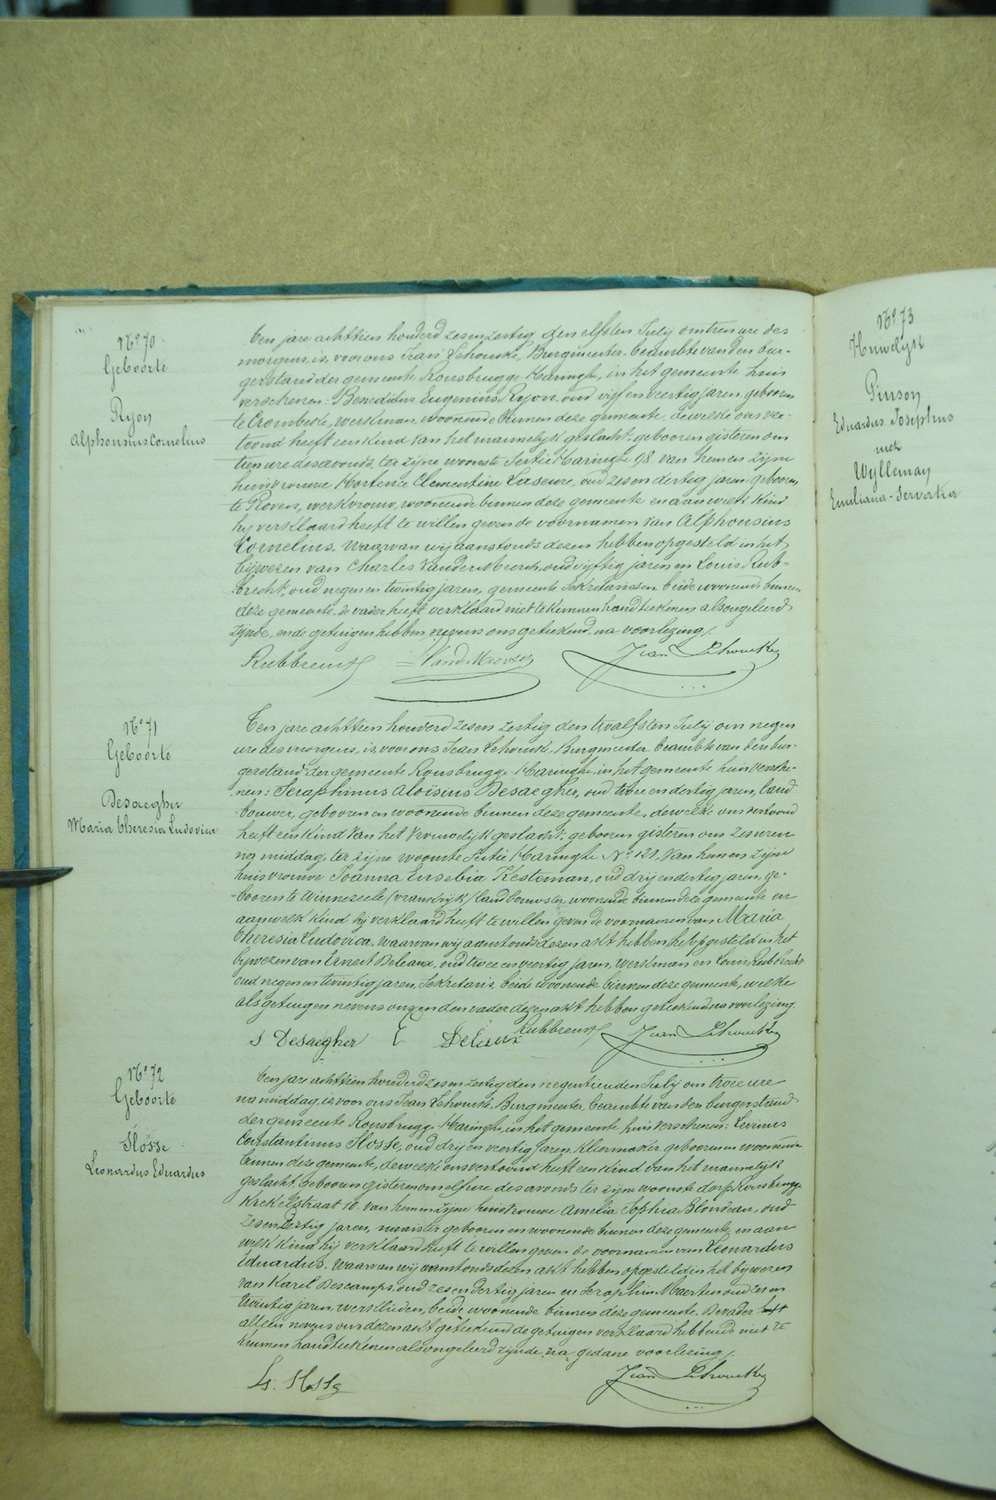 N° 70
Geboorte
Ryon
Alphonsius Cornelius
Ten jare achttien honderd zesenzestig, den elfsten July omtren ure des
morgens, is voor ons Jean Lehoucke, Burgmeester, beambte van den bur-
gerstand der gemeente Rousbrugge-Haringhe, in het gemeente huis
verschenen: Benedictus Eugenius Ryon, oud vijf en veertig jaren, geboren
te Crombeke, werkman, woonende binnen deze gemeente, dewelke ons ver-
toond heeft een kind van het mannelijk geslacht, geboren gisteren om
tien ure des avonds, ter zijne woonste Sectie Haringhe 98, van hem en zijne
huisvrouwe Hortence Clementine Laseure, oud zes en dertig jaren, geboren
te Proven, werkvrouw, woonende binnen deze gemeente en aan welk kind
hy verklaard heeft te willen geven de voornamen van Alphonsius
Cornelius. Waarvan wij aanstonds dezen hebben opgesteld in het
bijwezen van Charles Vandenbroucke, oud vijftig jaren en Louis Rub-
brecht, oud negen en twintig jaren, gemeente Sekretarissen, beide woonende binnen
deze gemeente, de vader heeft verklaard niet te kunnen handteekenen als ongeleerd
zijnde, en de getuigen hebben nevens ons geteekend na voorlezing.
Rubbrecht Jean Lehoucke
N° 71
Geboorte
Desaegher
Maria Theresia Ludovica
Ten jare achttien honderd zesen zestig den twalfsten July om negen
ure des morgens, is voor ons Jean Lehoucke, Burgmeester, beambte van den bur-
gerstand der gemeente Rousbrugge-Haringhe, in het gemeente huis versche-
nen: Seraphinus Aloisius Desaegher, oud twee en dertig jaren, land-
bouwer, geboren en woonende binnen deze gemeente, dewelke ons vertoond
heeft een kind van het vrouwelijk geslacht, geboren gisteren om zes uren
na middag, ter zijne woonste Sectie Haringhe N° 121, van hem en zijne
huisvrouwe Joanna Eusebia Kesteman, oud drij en dertig jaren, ge-
boren te Winnezeele (vrankrijk) landbouwster, woonende binnen deze gemeente en
aan welk kind hy verklaard heeft te willen geven de voornamen van Maria
Theresia Ludovica. Waarvan wij aanstonds dezen akt hebben opgesteld in het
bijwezen van Ernest Deleaux, oud twee en veertig jaren, werkman en Louis Rubbrecht
oud negen en twintig jaren, Sekretaris, beide woonende binnen deze gemeente, welke
als getuigen nevens ons en den vader dezen akt hebben geteekend na voorlezing
S Desaegher E Rubbrecht Jean Lehoucke
N° 72
Geboorte
Hosse
Leonardus Eduardus
Ten jare achttien honderd zes en zestig den negentienden July om twee ure
na middag, is voor ons Jean Lehoucke, Burgmeester, beambte van den burgerstand
der gemeente Rousbrugge-Haringhe, in het gemeente huis verschenen: Livinus
Constantinus Hosse, oud drij en veertig jaren, kleermaker geboren en woonende
binnen deze gemeente, dewelke ons vertoond heeft een kind van het mannelijk
geslacht, geboren gisteren om elf ure des avonds ter zijne woonste dorp Rousbrugge
Krekelstraat 10, van hem en zijne huisvrouwe Amelia Sophia Blondeau, oud
zes en dertig jaren, naaister, geboren en woonende binnen deze gemeente, en aan
welk kind hij verklaard heeft te willen geven de voornamen van Leonardus
Eduardus. Waarvan wij aanstonds dezen akt hebben opgesteld in het bijwezen
van Karel Descamps, oud zes en dertig jaren en Seraphin Maerten oud zes en
twintig jaren, werklieden, beide woonende binnen deze gemeente. De vader heeft
alleen nevens ons dezen akt geteekend de getuigen verklaard hebbende niet te
kunnen handteekenen als ongeleerd zijnde, na gedane voorlezing.
Jean Lehoucke
N° 73
Huwelyk
Pinson
Eduardus Josephus
met
Wyllemay
Emiliana-Servatia